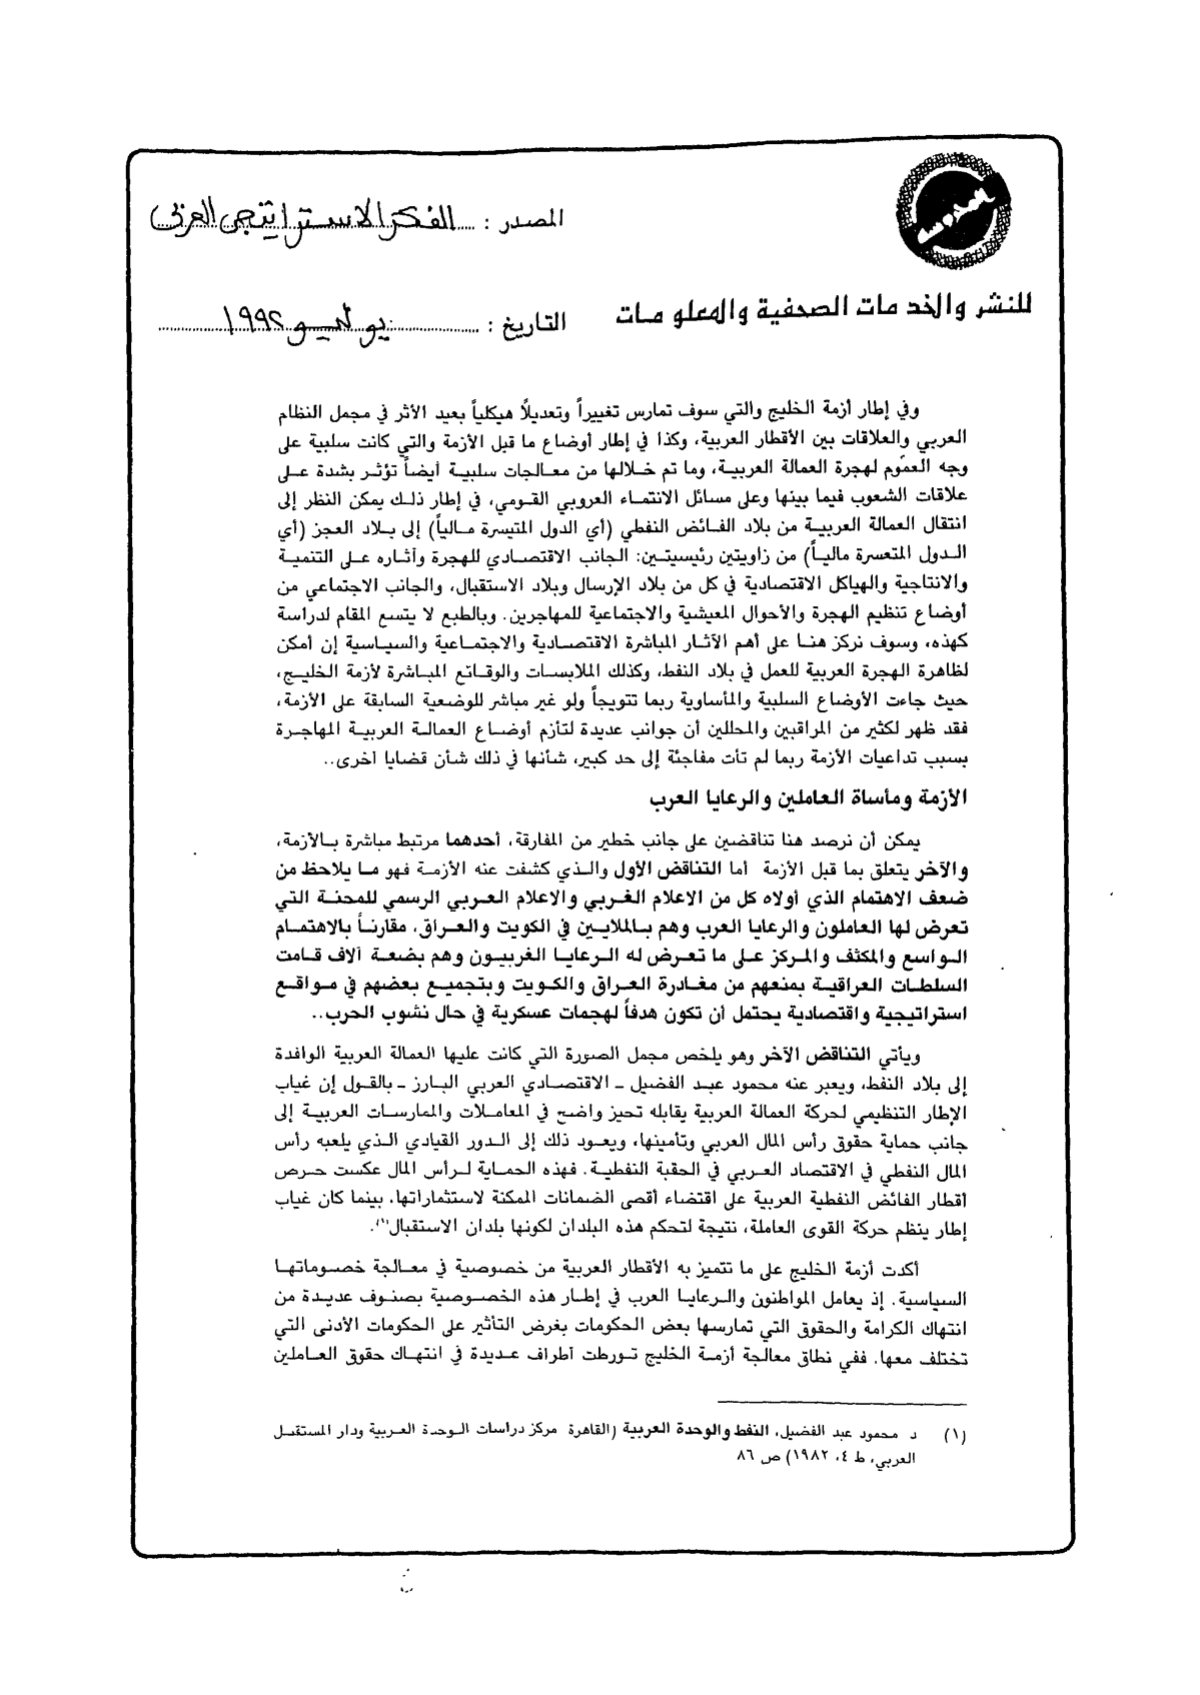 المصدر : الفكر الاستراتيجي العربي
للنشر والخدمات الصحفية والمعلومات
التاريخ : يوليو ١٩٩٢
وفي إطار أزمة الخليج والتي سوف تمارس تغييراً وتعديلاً هيكلياً بعيد الأثر في مجمل النظام
العربي والعلاقات بين الأقطار العربية، وكذا في إطار أوضاع ما قبل الأزمة والتي كانت سلبية على
وجه العموم لهجرة العمالة العربية، وما تم خلالها من معالجات سلبية أيضاً تؤثر بشدة على
علاقات الشعوب فيما بينها وعلى مسائل الانتماء العروبي القومي، في إطار ذلك يمكن النظر إلى
انتقال العمالة العربية من بلاد الفائض النفطي (أي الدول المتيسرة مالياً) إلى بلاد العجز (أي
الدول المتعسرة مالياً) من زاويتين رئيسيتين: الجانب الاقتصادي للهجرة وأثاره على التنمية
والانتاجية والهياكل الاقتصادية في كل من بلاد الإرسال وبلاد الاستقبال، والجانب الاجتماعي من
أوضاع تنظيم الهجرة والأحوال المعيشية والاجتماعية للمهاجرين. وبالطبع لا يتسع المقام لدراسة
كهذه، وسوف نركز هنا على أهم الآثار المباشرة الاقتصادية والاجتماعية والسياسية إن أمكن
لظاهرة الهجرة العربية للعمل في بلاد النفط، وكذلك الملابسات والوقائع المباشرة لأزمة الخليج،
حيث جاءت الأوضاع السلبية والمأساوية ربما تتويجاً ولو غير مباشر للوضعية السابقة على الأزمة،
فقد ظهر لكثير من المراقبين والمحللين أن جوانب عديدة لتأزم أوضاع العمالة العربية المهاجرة
بسبب تداعيات الأزمة ربما لم تأت مفاجئة إلى حد كبير، شأنها في ذلك شأن قضايا أخرى..
الأزمة ومأساة العاملين والرعايا العرب
يمكن أن نرصد هنا تناقضين على جانب خطير من المفارقة، أحدهما مرتبط مباشرة بالأزمة،
والآخر يتعلق بما قبل الأزمة أما التناقض الأول والذي كشفت عنه الأزمة فهو ما يلاحظ من
ضعف الاهتمام الذي أولاه كل من الاعلام الغربي والاعلام العربي الرسمي للمحنة التي
تعرض لها العاملون والرعايا العرب وهم بالملايين في الكويت والعراق، مقارناً بالاهتمام
الواسع والمكثف والمركز على ما تعرض له الرعايا الغربيون وهم بضعة آلاف قامت
السلطات العراقية بمنعهم من مغادرة العراق والكويت وبتجميع بعضهم في مواقع
استراتيجية واقتصادية يحتمل أن تكون هدفاً لهجمات عسكرية في حال نشوب الحرب..
ويأتي التناقض الآخر وهو يلخص مجمل الصورة التي كانت عليها العمالة العربية الوافدة
إلى بلاد النفط، ويعبر عنه محمود عبد الفضيل ـ الاقتصادي العربي البارز ـ بالقول إن غياب
الإطار التنظيمي لحركة العمالة العربية يقابله تحيز واضح في المعاملات والممارسات العربية إلى
جانب حماية حقوق رأس المال العربي وتأمينها، ويعود ذلك إلى الدور القيادي الذي يلعبه رأس
المال النفطي في الاقتصاد العربي في الحقبة النفطية. فهذه الحماية لرأس المال عكست حرص
أقطار الفائض النفطية العربية على اقتضاء أقصى الضمانات الممكنة لاستثماراتها، بينما كان غياب
إطار ينظم حركة القوى العاملة، نتيجة لتحكم هذه البلدان لكونها بلدان الاستقبال(١).
أكدت أزمة الخليج على ما تتميز به الأقطار العربية من خصوصية في معالجة خصوماتها
السياسية. إذ يعامل المواطنون والرعايا العرب في إطار هذه الخصوصية بصنوف عديدة من
انتهاك الكرامة والحقوق التي تمارسها بعض الحكومات بغرض التأثير على الحكومات الأدنى التي
تختلف معها. ففي نطاق معالجة أزمة الخليج تورطت أطراف عديدة في انتهاك حقوق العاملين
(١) د محمود عبد الفضيل، النفط والوحدة العربية (القاهرة مركز دراسات الوحدة العربية ودار المستقبل
العربي، ط ٤، ١٩٨٢) ص ٨٦